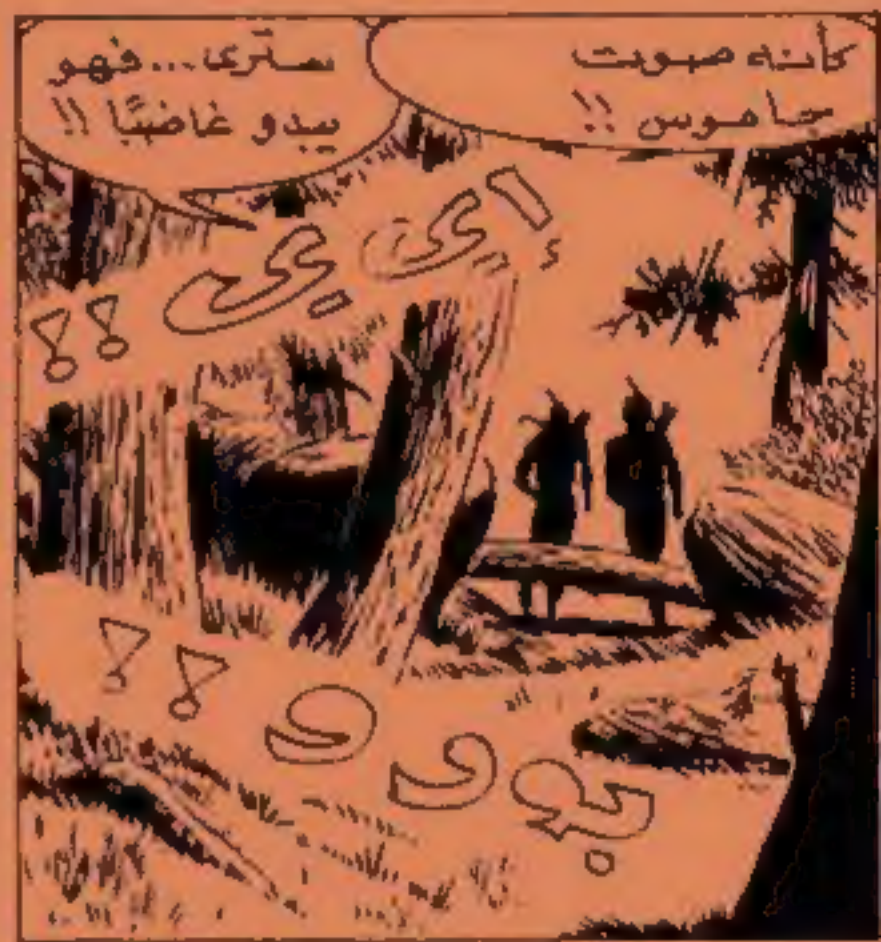 كأنه صوت
جاموس !!
سترى... فهو
يبدو غاضبًا !!
إى يى !!
بووو !!